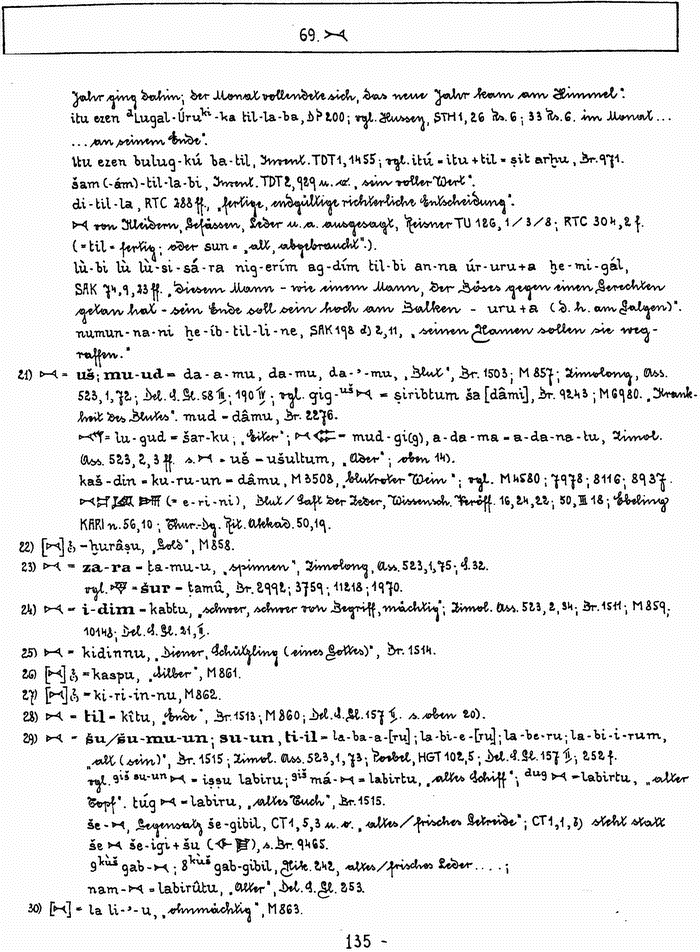 69. 𒁁
Jahr ging dahin; der Monat vollendete sich, das neue Jahr kam am Himmel".
itu ezen ᵈLugal-Úruᵏⁱ-ka til-la-ba, DP 200; vgl. Hussey, STH 1, 26 Rs. 6; 33 Rs. 6. im Monat ...
... an seinem Ende".
itu ezen bulug-kú ba-til, Invent. TDT 1, 1455; vgl. itú = itu + til = ṣit arḫu, Br. 971.
šam (-ám)-til-la-bi, Invent. TDT 2, 929 u. ö. „sein voller Wert".
di-til-la, RTC 288 ff, „fertige, endgültige richterliche Entscheidung".
𒁁 von Kleidern, Gefässen, Leder u. a. ausgesagt, Reisner TU 126, 1/3/8; RTC 304, 2 f.
(= til = fertig; oder sun = „alt, abgebraucht".).
lù-bi lù lù-si-sá-ra nig-erím ag-dím til-bi an-na úr-uru+a ḫe-mi-gál,
SAK 74, 9, 23 ff. „diesem Mann - wie einem Mann, der Böses gegen einen Gerechten
getan hat - sein Ende soll sein hoch am Balken - uru+a (d. h. am Galgen)".
numun-na-ni ḫe-íb-til-li-ne, SAK 198 d) 2, 11, „seinen Namen sollen sie weg-
raffen."
21) 𒁁 = uš; mu-ud = da-a-mu, da-mu, da-ʾ-mu, „Blut", Br. 1503; M 857; Zimolong, Ass.
523, 1, 72; Del. S. Gl. 58 II; 190 IV; vgl. gig-ᵘˢ̌𒁁 = ṣiribtum ša [dâmi], Br. 9243; M 6980. „Krank-
heit des Blutes". mud = dâmu, Br. 2276.
= lu-gud = šar-ku; „Eiter"; = mud-gi(g), a-da-ma = a-da-na-tu, Zimol.
Ass. 523, 2, 3 ff. s. 𒁁 = uš = ušultum, „Ader"; oben 14).
kaš-din = ku-ru-un = dâmu, M 3508, „blutroter Wein"; vgl. M 4580; 7978; 8116; 8937.
(= e-ri-ni), Blut/Saft der Zeder, Wissensch. Veröff. 16, 24, 22; 50, III 18; Ebeling
KARI n. 56, 10; Thur.-Dg. Rit. Akkad. 50, 19.
22) [𒁁] = ḫurâṣu, „Gold", M 858.
23) 𒁁 = za-ra = ṭa-mu-u, „spinnen", Zimolong, Ass. 523, 1, 75; S. 32.
vgl. = šur = ṭamû, Br. 2992; 3759; 11218; 1970.
24) 𒁁 = i-dim = kabtu, „schwer, schwer von Begriff, mächtig"; Zimol. Ass. 523, 2, 34; Br. 1511; M 859;
10148; Del. S. Gl. 21, II.
25) 𒁁 = kidinnu, „Diener, Schützling (eines Gottes)", Br. 1514.
26) [𒁁] = kaspu, „Silber", M 861.
27) [𒁁] = ki-ri-in-nu, M 862.
28) 𒁁 = til = kîtu, „Ende", Br. 1513; M 860; Del. S. Gl. 157 II. s. oben 20).
29) 𒁁 = šu/šu-mu-un; su-un, ti-il = la-ba-a-[ru]; la-bi-e-[ru]; la-be-ru; la-bi-i-rum,
„alt (sein)", Br. 1515; Zimol. Ass. 523, 1, 73; Poebel, HGT 102, 5; Del. S. Gl. 157 II; 252 f.
vgl. ᵍⁱˢ̌ ˢᵘ⁻ᵘⁿ 𒁁 = iṣṣu labiru; ᵍⁱˢ̌ má-𒁁 = labirtu, „altes Schiff"; ᵈᵘᵍ 𒁁 = labirtu, „alter
Topf". túg 𒁁 = labiru, „altes Tuch", Br. 1515.
še-𒁁, Gegensatz še-gibil, CT 1, 5, 3 u. ö. „altes/frisches Getreide"; CT 1, 1, 3) steht statt
še 𒁁 še-igi+šu, s. Br. 9465.
9ᵏᵘ̀ˢ̌ gab-𒁁; 8ᵏᵘ̀ˢ̌ gab-gibil, Nik. 242, altes/frisches Leder ....;
nam-𒁁 = labirûtu, „Alter", Del. S. Gl. 253.
30) [𒁁] = la li-ʾ-u, „ohnmächtig", M 863.
135 -